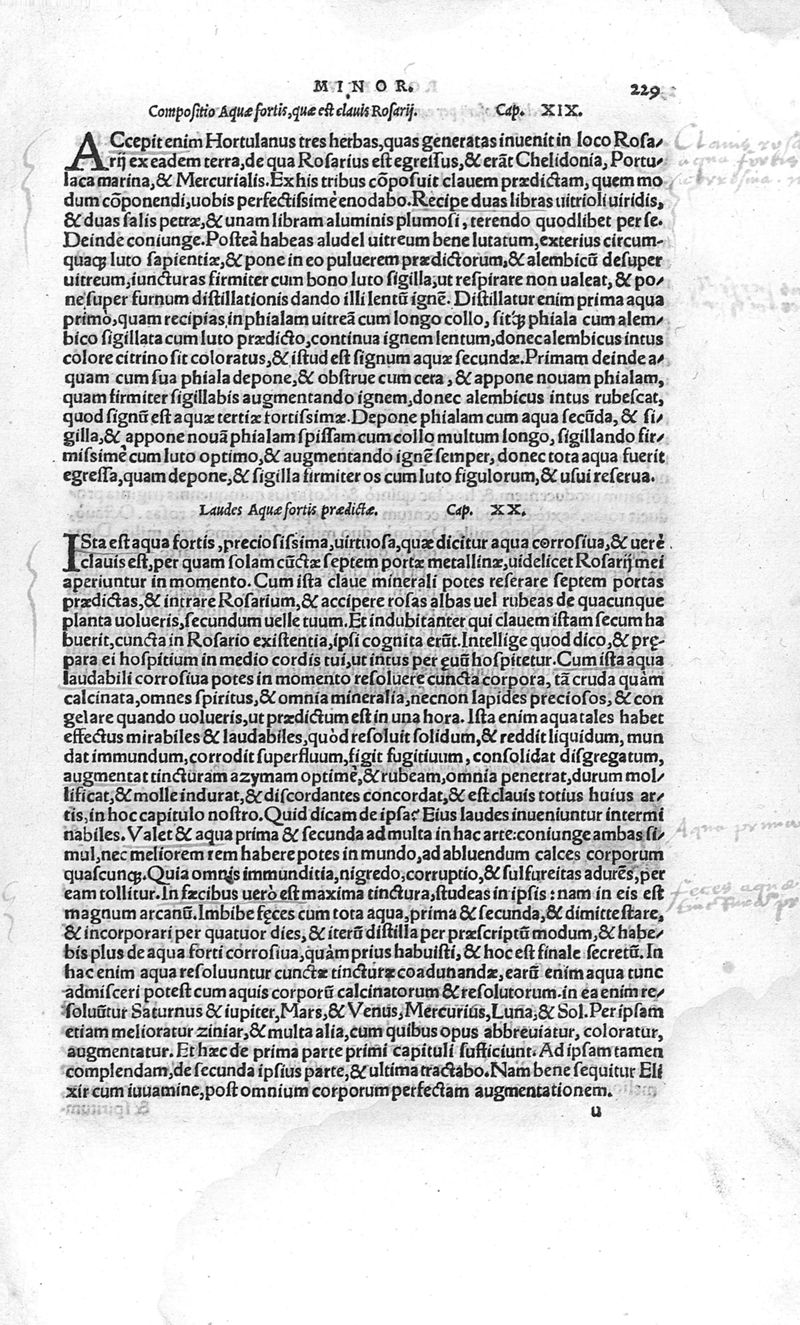 MINOR. 229
Compositio Aquæ fortis, quæ est clauis Rosarij. Cap. XIX.
ACcepit enim Hortulanus tres herbas, quas generatas inuenit in loco Rosa/
rij ex eadem terra, de qua Rosarius est egressus, & erãt Chelidonia, Portu/
laca marina, & Mercurialis. Ex his tribus cõposuit clauem prædictam, quem mo
dum cõponendi, uobis perfectissimè enodabo. Recipe duas libras uitrioli uiridis,
& duas salis petræ, & unam libram aluminis plumosi, terendo quodlibet per se.
Deinde coniunge. Posteà habeas aludel uitreum bene lutatum, exterius circum-
quaq; luto sapientiæ, & pone in eo puluerem prædictorum, & alembicũ desuper
uitreum, iuncturas firmiter cum bono luto sigilla, ut respirare non ualeat, & po/
ne super furnum distillationis dando illi lentũ ignẽ. Distillatur enim prima aqua
primò, quam recipias in phialam uitreã cum longo collo, sitq; phiala cum alem/
bico sigillata cum luto prædicto, continua ignem lentum, donec alembicus intus
colore citrino sit coloratus, & istud est signum aquæ secundæ. Primam deinde a/
quam cum sua phiala depone, & obstrue cum cera, & appone nouam phialam,
quam firmiter sigillabis augmentando ignem, donec alembicus intus rubescat,
quod signũ est aquæ tertiæ fortissimæ. Depone phialam cum aqua secũda, & si/
gilla, & appone nouã phialam spissam cum collo multum longo, sigillando fir/
missimè cum luto optimo, & augmentando ignẽ semper, donec tota aqua fuerit
egressa, quam depone, & sigilla firmiter os cum luto figulorum, & usui reserua.
Laudes Aquæ fortis prædictæ. Cap. XX.
ISta est aqua fortis, preciosissima, uirtuosa, quæ dicitur aqua corrosiua, & uerè
clauis est, per quam solam cũctæ septem portæ metallinæ, uidelicet Rosarij mei
aperiuntur in momento. Cum ista claue minerali potes reserare septem portas
prædictas, & intrare Rosarium, & accipere rosas albas uel rubeas de quacunque
planta uolueris, secundum uelle tuum. Et indubitanter qui clauem istam secum ha
buerit, cuncta in Rosario existentia, ipsi cognita erũt. Intellige quod dico, & prę-
para ei hospitium in medio cordis tui, ut intus per ęuũ hospitetur. Cum ista aqua
laudabili corrosiua potes in momento resoluere cuncta corpora, tã cruda quàm
calcinata, omnes spiritus, & omnia mineralia, necnon lapides preciosos, & con
gelare quando uolueris, ut prædictum est in una hora. Ista enim aqua tales habet
effectus mirabiles & laudabiles, quòd resoluit solidum, & reddit liquidum, mun
dat immundum, corrodit superfluum, figit fugitiuum, consolidat disgregatum,
augmentat tincturam azymam optimè, & rubeam, omnia penetrat, durum mol/
lificat, & molle indurat, & discordantes concordat, & est clauis totius huius ar/
tis, in hoc capitulo nostro. Quid dicam de ipsa? Eius laudes inueniuntur intermi
nabiles. Valet & aqua prima & secunda ad multa in hac arte: coniunge ambas si/
mul, nec meliorem rem habere potes in mundo, ad abluendum calces corporum
quascunq;. Quia omnis immunditia, nigredo, corruptio, & sulfureitas adurẽs, per
eam tollitur. In fæcibus uerò est maxima tinctura, studeas in ipsis: nam in eis est
magnum arcanũ. Imbibe fęces cum tota aqua, prima & secunda, & dimitte stare,
& incorporari per quatuor dies, & iterũ distilla per præscriptũ modum, & habe/
bis plus de aqua forti corrosiua, quàm prius habuisti, & hoc est finale secretũ. In
hac enim aqua resoluuntur cunctæ tincturæ coadunandæ, earũ enim aqua tunc
admisceri potest cum aquis corporũ calcinatorum & resolutorum. in ea enim re/
soluũtur Saturnus & iupiter, Mars, & Venus, Mercurius, Luna, & Sol. Per ipsam
etiam melioratur ziniar, & multa alia, cum quibus opus abbreuiatur, coloratur,
augmentatur. Et hæc de prima parte primi capituli sufficiunt. Ad ipsam tamen
complendam, de secunda ipsius parte, & ultima tractabo. Nam bene sequitur Eli
xir cum iuuamine, post omnium corporum perfectam augmentationem.
u
Clauis rosa
aqua fortis
corrosiua.
Aqua prima
feces aquæ